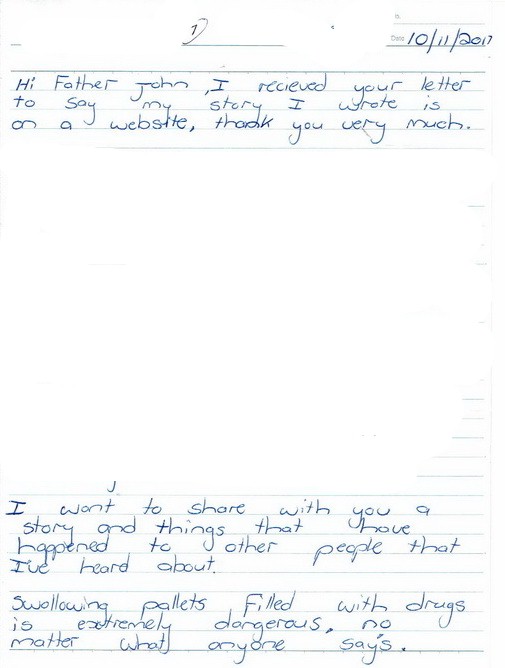 1)
Date 10/11/2017
Hi Father John, I recieved your letter
to say my story I wrote is
on a website, thank you very much.
I want to share with you a
story and things that have
happened to other people that
I've heard about.
Swollowing pallets filled with drugs
is extremely dangerous, no
matter what anyone say's.